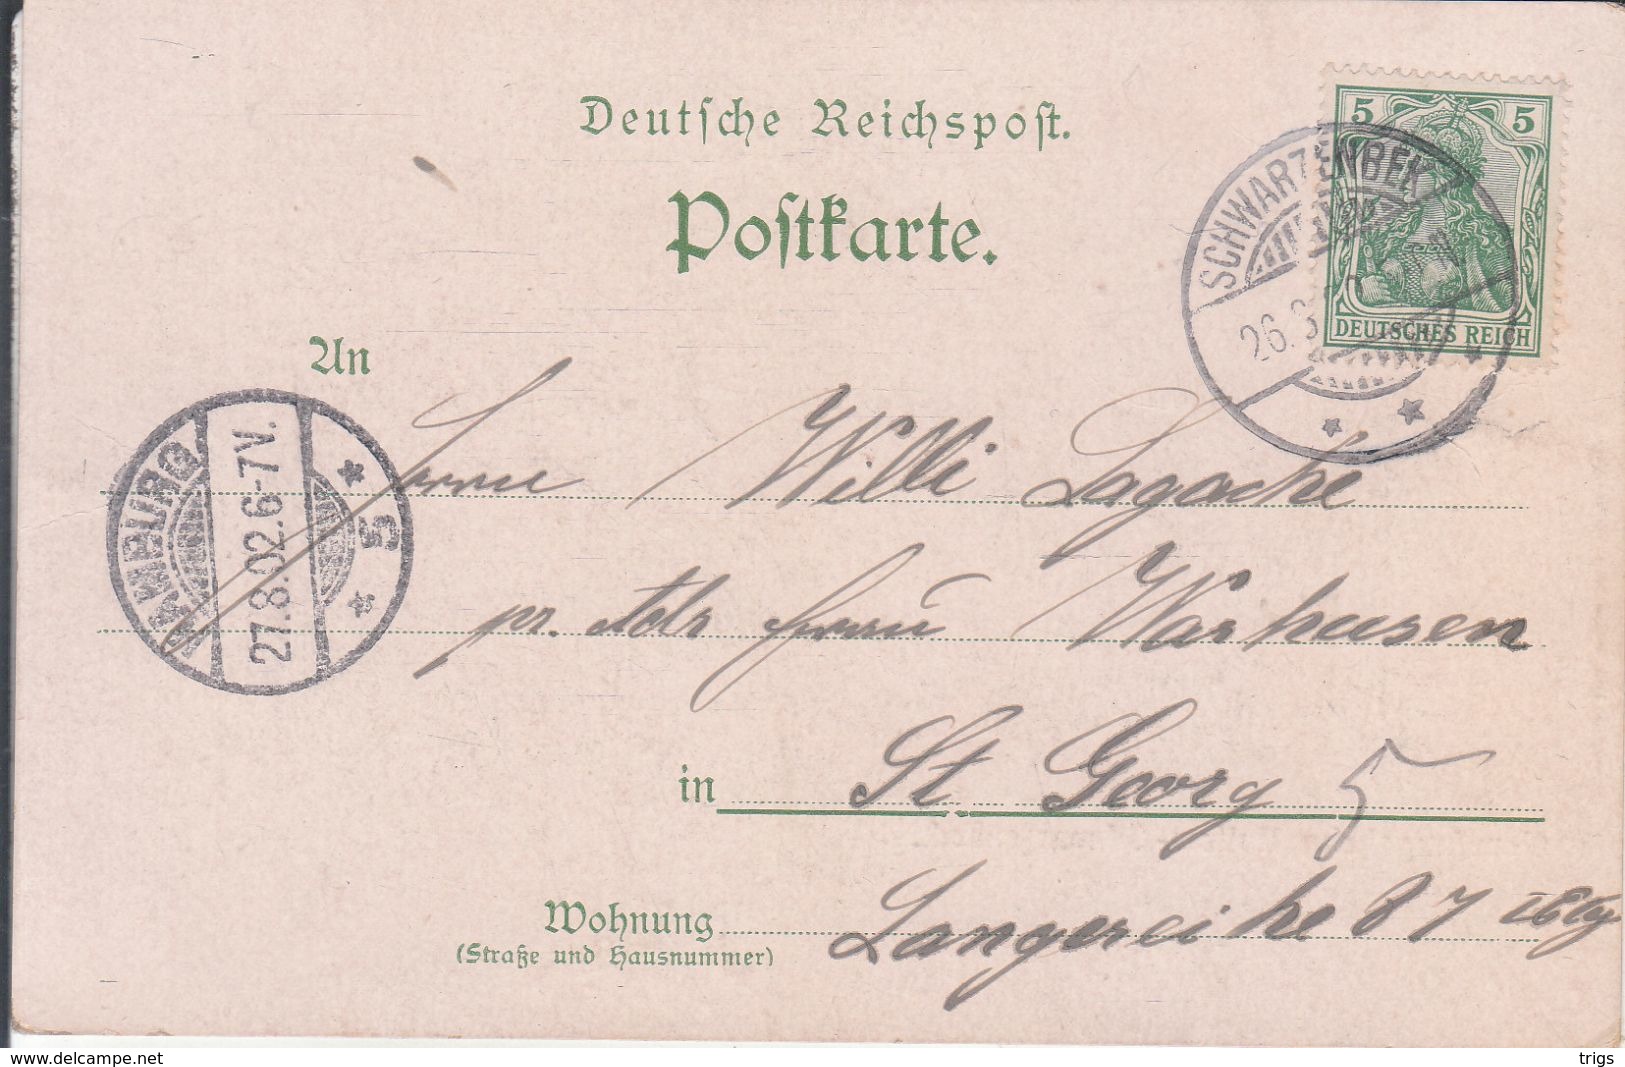 Deutsche Reichspost.
Postkarte.
5 5
DEUTSCHES REICH
SCHWARZENBEK
26. 8.
An
HAMBURG
27.8.02.6-7V.
* 5 *
Herrn Willi Lagache
pr. Adr Frau Warhusen
in St Georg 5
Wohnung Langereihe 87 I Etg
(Straße und Hausnummer)
www.delcampe.net
trigs